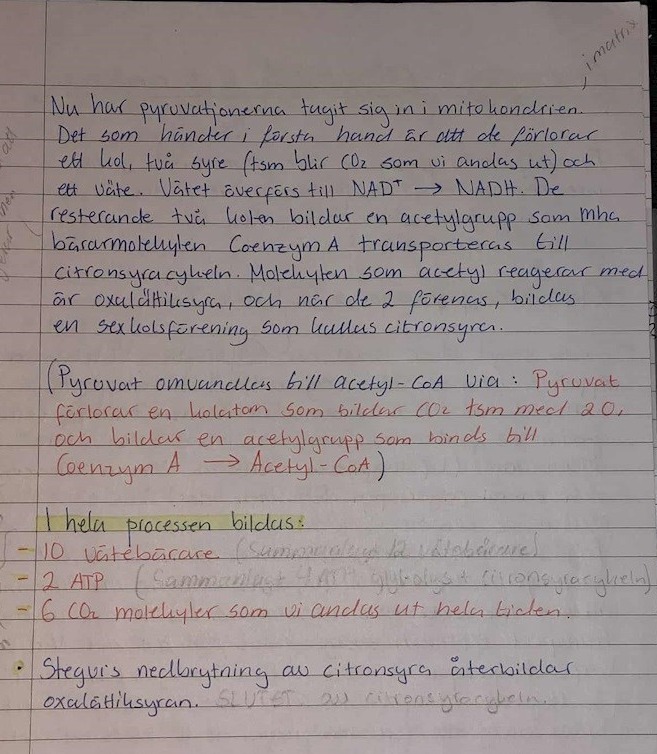 , i matrix
Nu har pyruvatjonerna tagit sig in i mitokondrien.
Det som händer i första hand är att de förlorar
ett kol, två syre (tsm blir CO₂ som vi andas ut) och
ett väte. Vätet överförs till NAD⁺ → NADH. De
resterande två kolen bildar en acetylgrupp som mha
bärarmolekylen Coenzym A transporteras till
citronsyracykeln. Molekylen som acetyl reagerar med
är oxalättiksyra, och när de 2 förenas, bildas
en sexkolsförening som kallas citronsyra.
(Pyruvat omvandlas till acetyl-CoA via: Pyruvat
förlorar en kolatom som bildar CO₂ tsm med 2O,
och bildar en acetylgrupp som binds till
Coenzym A → Acetyl-CoA)
I hela processen bildas:
- 10 vätebärare (Sammanlagt 12 vätebärare)
- 2 ATP (Sammanlagt 4 ATP glykolys + citronsyracykeln)
- 6 CO₂ molekyler som vi andas ut hela tiden.
• Stegvis nedbrytning av citronsyra återbildar
oxalättiksyran. SLUTET av citronsyracykeln.